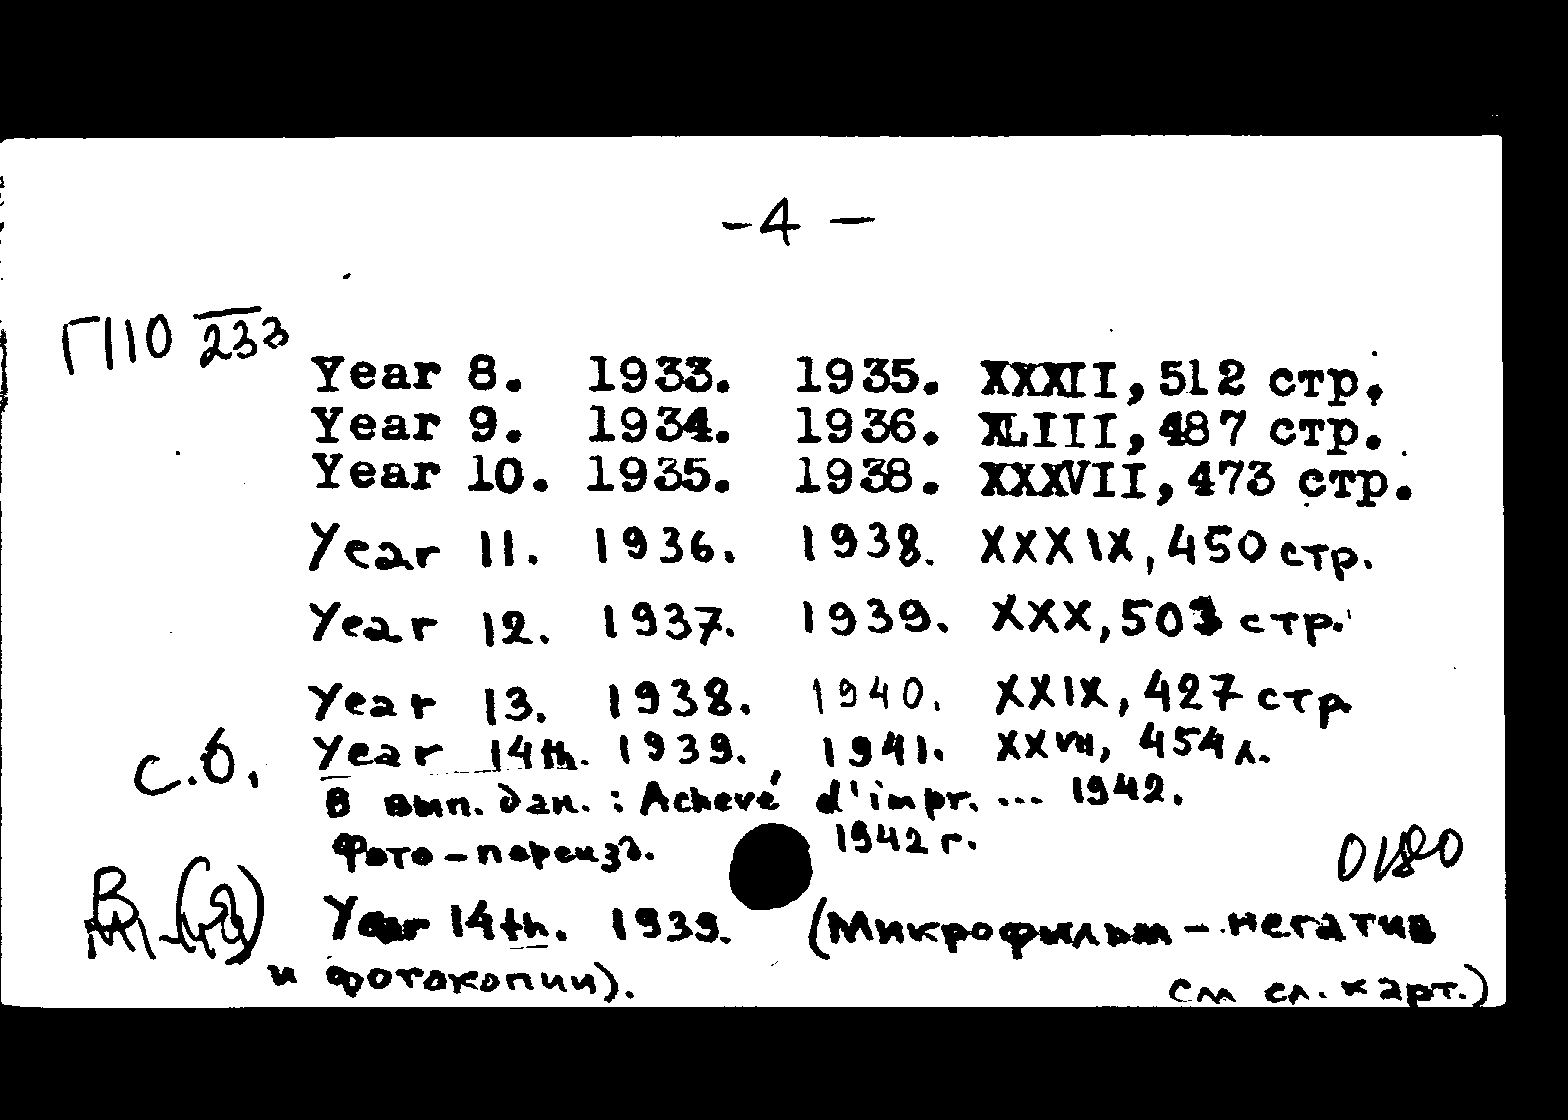 - 4 -
ГПО 233
Year 8. 1933. 1935. XXXII, 512 стр.
Year 9. 1934. 1936. XLIII, 487 стр.
Year 10. 1935. 1938. XXXVII, 473 стр.
Year 11. 1936. 1938. XXXIX, 450 стр.
Year 12. 1937. 1939. XXX, 503 стр.
Year 13. 1938. 1940. XXIX, 427 стр
с.б. Year 14th. 1939. 1941. XXVII, 454 л.
В вып. дан. : Achevé d'impr. ... 1942.
Фото-переизд. 1942 г.
0180
Year 14th. 1939. (Микрофильм - негатив
и фотокопии).
см сл. карт.)